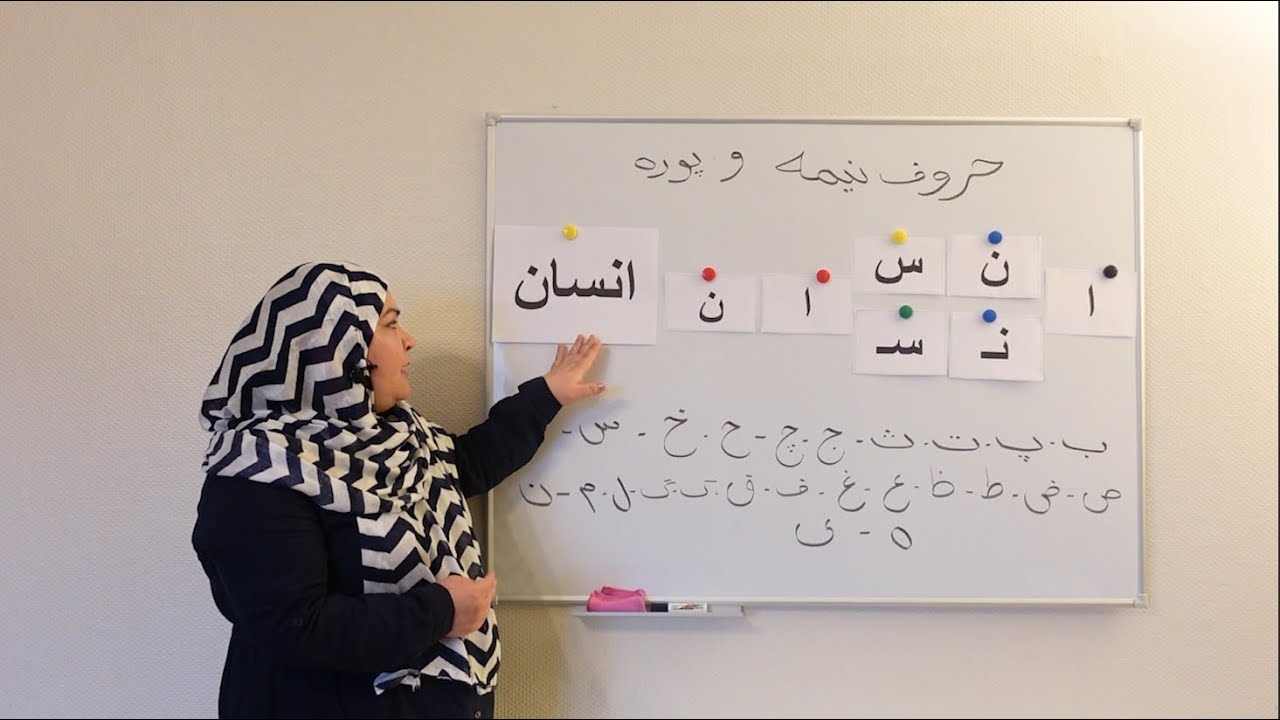 حروف نیمه و پوره
ا ن س ا ن انسان
نـ سـ
ب - پ - ت - ث - ج - چ - ح - خ - س -
ص - ض - ط - ظ - ع - غ - ف - ق - ک - گ - ل - م - ن
ه - ی